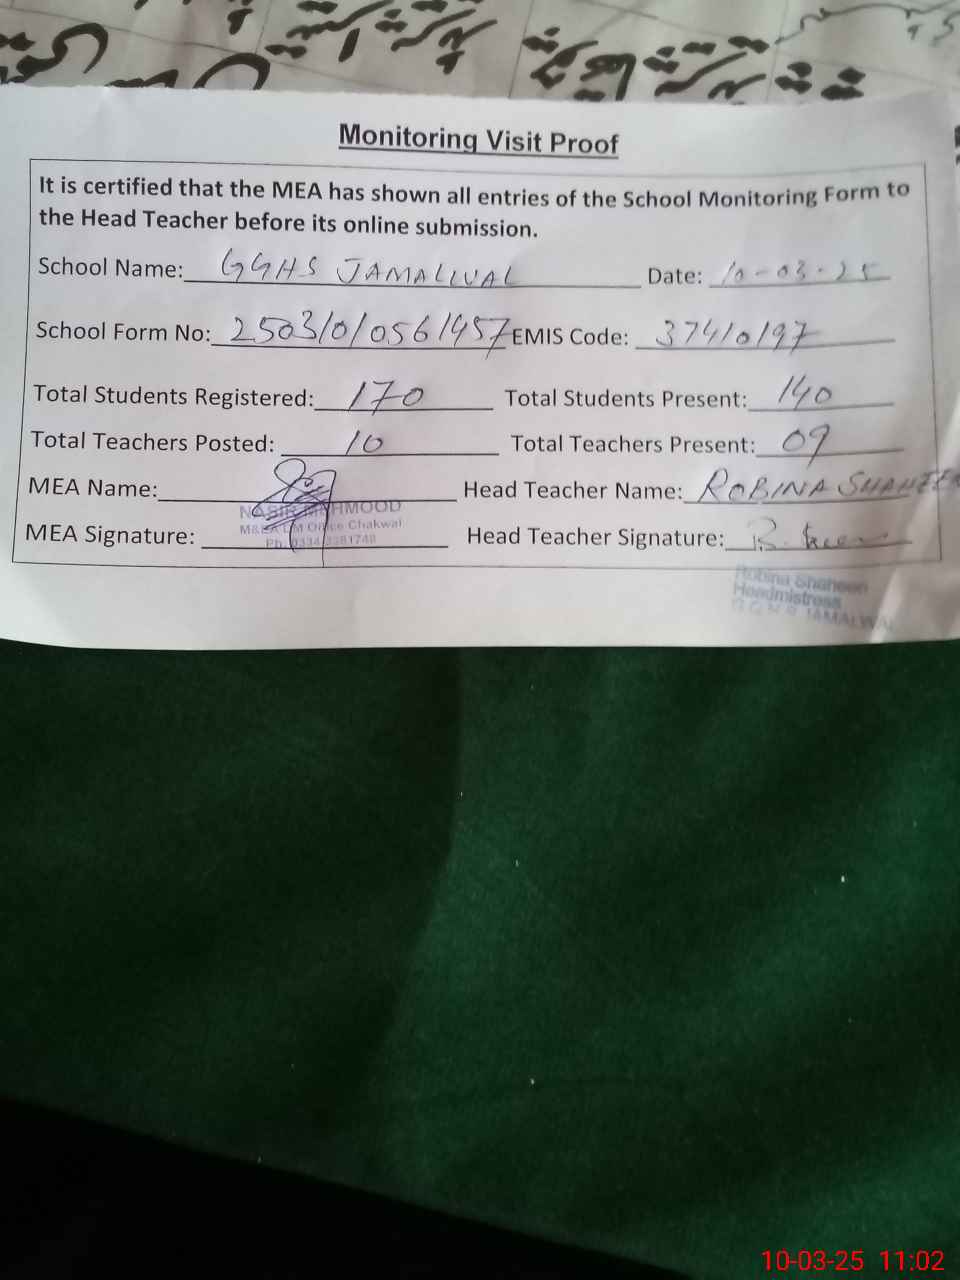 Monitoring Visit Proof
It is certified that the MEA has shown all entries of the School Monitoring Form to
the Head Teacher before its online submission.
School Name: GGHS JAMALWAL Date: 10-03-25
School Form No: 25031010561457 EMIS Code: 37410197
Total Students Registered: 170 Total Students Present: 140
Total Teachers Posted: 10 Total Teachers Present: 09
MEA Name: Head Teacher Name: ROBINA SHAHEEN
NASIR MAHMOOD
Office Chakwal
MEA Signature: Head Teacher Signature:
Robina Shaheen
Headmistress
JAMALWAL
10-03-25 11:02